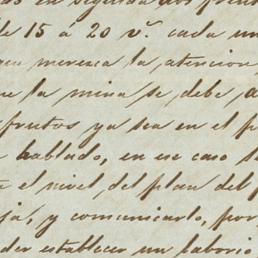 en seguida dos frent
de 15 a 20 v.ˢ cada un
merezca la atencion
la mina se debe
frutos ya sea en el p
hablado, en ese caso s
el nivel del plan del p
ja, y comunicarlo, por
der establecer un laborio